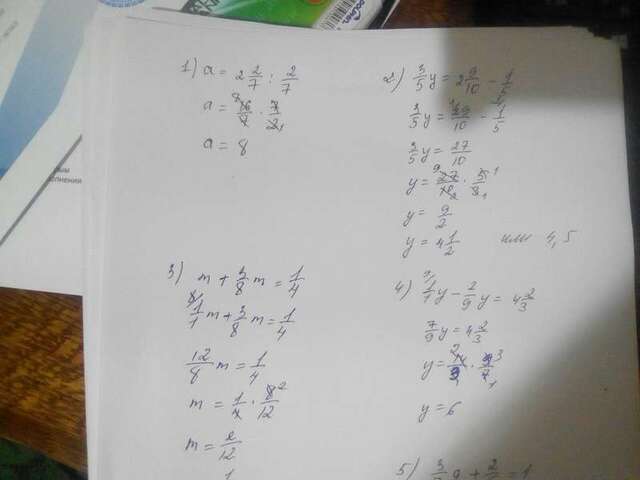 1) a = 2 2/7 : 2/7
a = 16/7 · 7/2
a = 8
2) 3/5 y = 2 9/10 - 1/5
3/5 y = 29/10 - 1/5
3/5 y = 27/10
y = 27/10 · 5/3
y = 9/2
y = 4 1/2 или 4,5
3) m + 5/8 m = 1/4
1/1 m + 5/8 m = 1/4
12/8 m = 1/4
m = 1/4 · 8/12
m = 2/12
1
4) 1/1 y - 2/9 y = 4 2/3
7/9 y = 4 2/3
y = 14/3 · 9/7
y = 6
5)